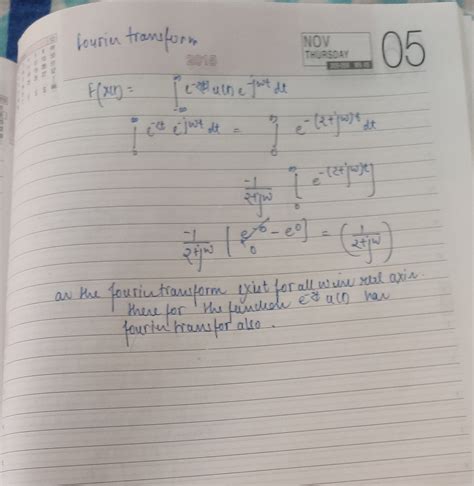 fourier transform
2015
NOV
THURSDAY
05
F(x(t)) = ∫ e^-2t u(t) e^-jwt dt
∫_0^∞ e^-2t e^-jwt dt = ∫_0^∞ e^-(2+jw)t dt
-1/(2+jw) [e^-(2+jw)t]_0^∞
-1/(2+jw) [e^-∞ - e^0] = (1/(2+jw))
as the fourier transform exist for all w in real axis.
there for the function e^-2t u(t) has
fourier transfor also.